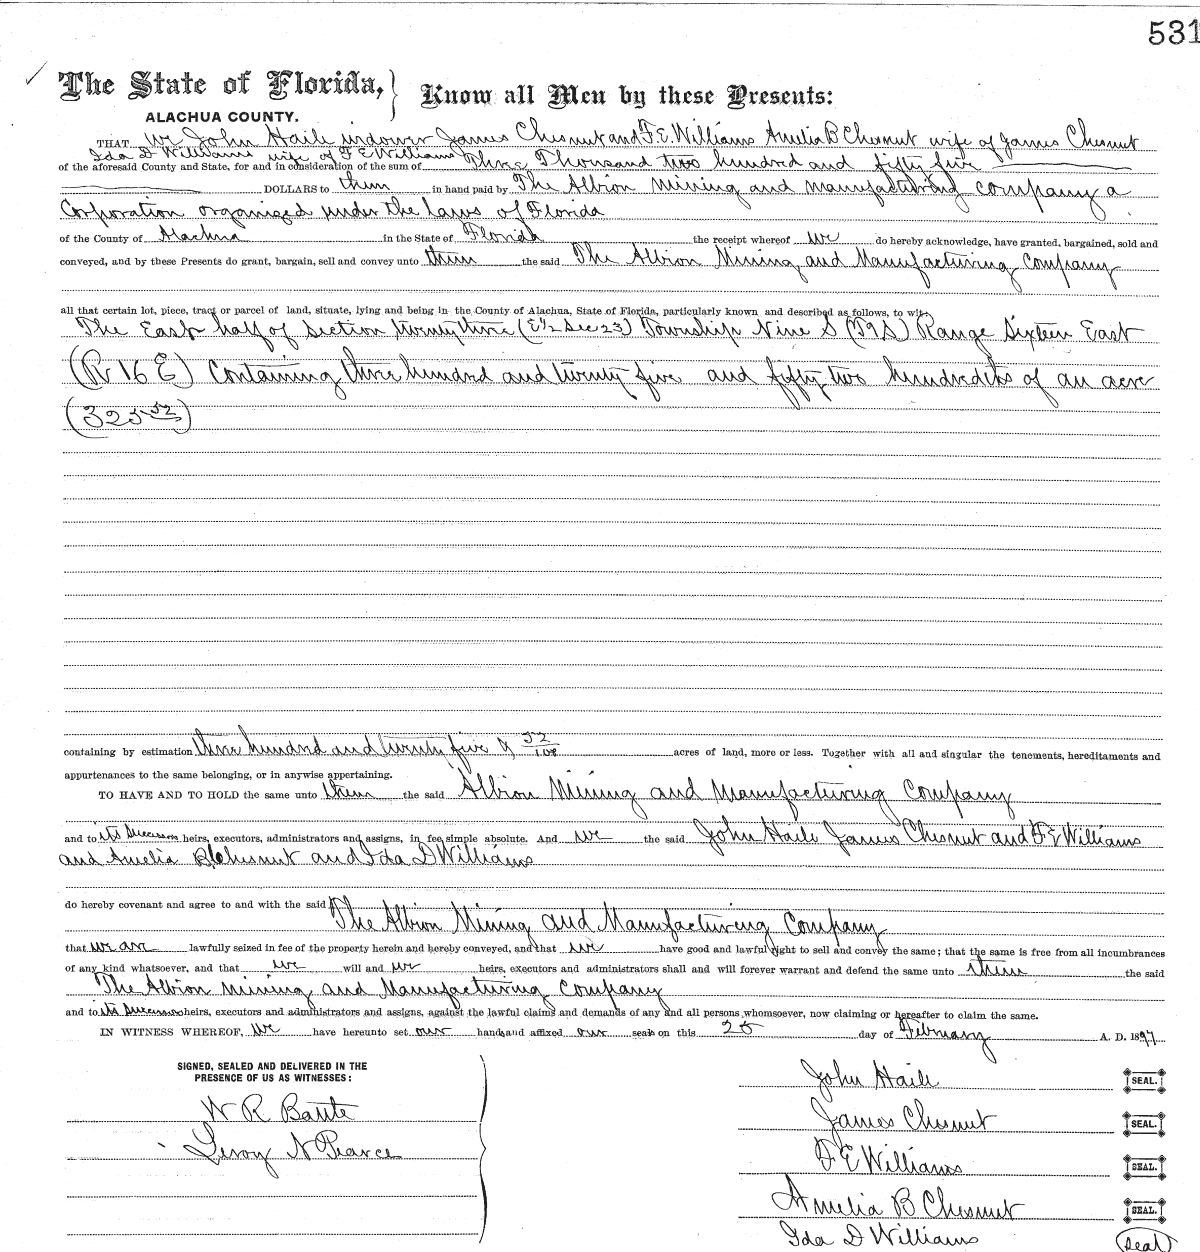 531
The State of Florida,
Know all Men by these Presents:
ALACHUA COUNTY.
THAT we John Haile widower James Chesnut and F. E. Williams Amelia B Chesnut wife of James Chesnut
Ida D Williams wife of F E Williams
of the aforesaid County and State, for and in consideration of the sum of Three Thousand two hundred and fifty five
DOLLARS to them in hand paid by The Albion Mining and Manufacturing Company a
Corporation organized under the Laws of Florida
of the County of Alachua in the State of Florida the receipt whereof we do hereby acknowledge, have granted, bargained, sold and
conveyed, and by these Presents do grant, bargain, sell and convey unto them the said The Albion Mining and Manufacturing Company
all that certain lot, piece, tract or parcel of land, situate, lying and being in the County of Alachua, State of Florida, particularly known and described as follows, to wit:
The East half of section twenty three (E½ Sec 23) Township Nine S (T9S) Range Sixteen East
(R 16 E) Containing three hundred and twenty five and fifty two hundredths of an acre
(325 52)
containing by estimation three hundred and twenty five & 52/100 acres of land, more or less. Together with all and singular the tenements, hereditaments and
appurtenances to the same belonging, or in anywise appertaining.
TO HAVE AND TO HOLD the same unto them the said Albion Mining and Manufacturing Company
and to its Successors heirs, executors, administrators and assigns, in fee simple absolute. And we the said John Haile James Chesnut and F E Williams
and Amelia B Chesnut and Ida D Williams
do hereby covenant and agree to and with the said The Albion Mining and Manufacturing Company
that we are lawfully seized in fee of the property herein and hereby conveyed, and that we have good and lawful right to sell and convey the same; that the same is free from all incumbrances
of any kind whatsoever, and that we will and our heirs, executors and administrators shall and will forever warrant and defend the same unto them the said
The Albion Mining and Manufacturing Company
and to its Successors heirs, executors and administrators and assigns, against the lawful claims and demands of any and all persons whomsoever, now claiming or hereafter to claim the same.
IN WITNESS WHEREOF, we have hereunto set our hands and affixed our seals on this 25 day of February A. D. 1897
SIGNED, SEALED AND DELIVERED IN THE
PRESENCE OF US AS WITNESSES:
John Haile SEAL.
W R Bante
James Chesnut SEAL.
Leroy N Pearce
F E Williams SEAL.
Amelia B Chesnut SEAL.
Ida D Williams (Seal)